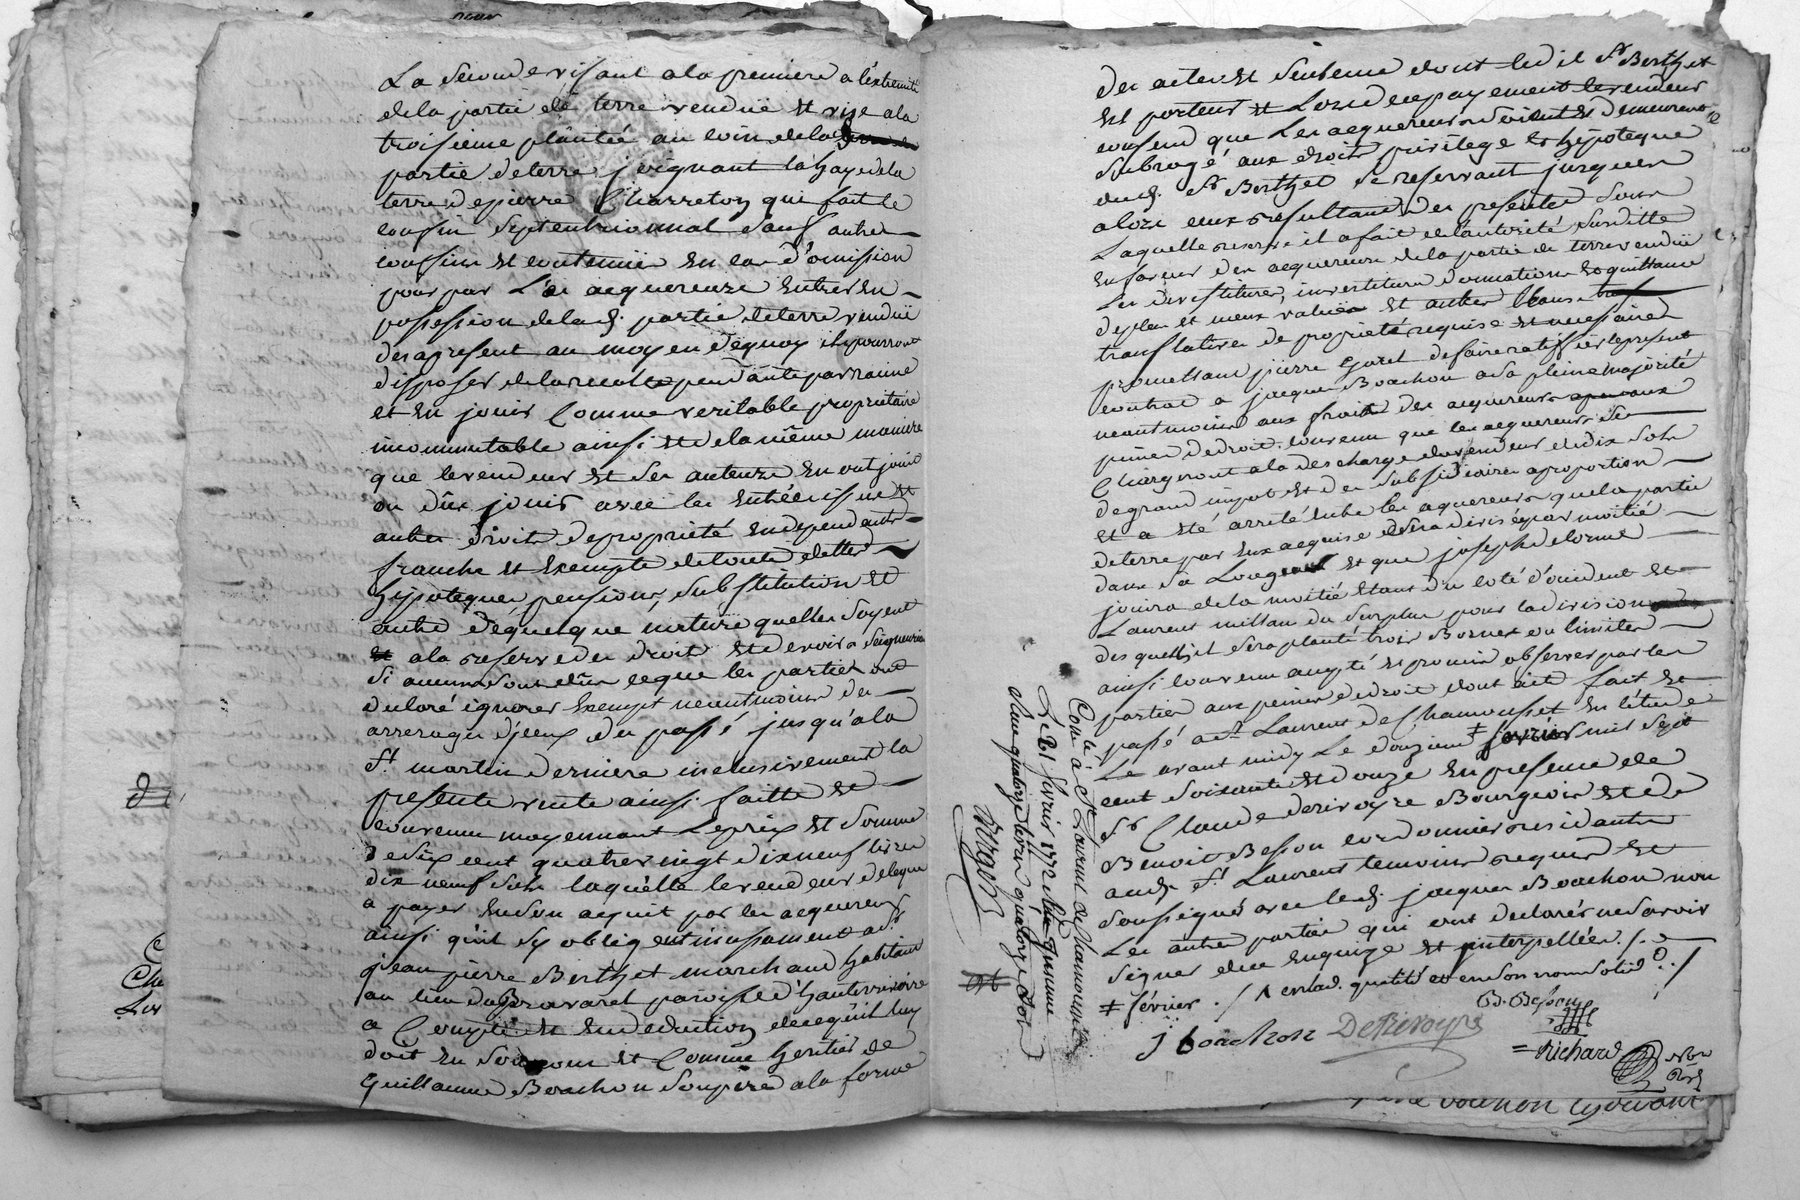 La seconde visant a la premiere a lextremité
de la partie de terre vendüe et vise a la
troisieme plantée au coin de lad.
partie de terre joignant la haye de la
terre de pierre Charreton qui fait le
confin septentrional sauf autres
confins et contenue en cas d'omission
pour par Les acquereurs entrer en
possession de lad. partie de terre vendüe
des apresent au moyen dequoy ils pourront
disposer de la recolte pendante par racine
et en jouir Comme veritable proprietaire
incommutable ainsi et de la même maniere
que le vendeur et ses auteurs en ont jouit
ou dûs jouir avec les entrées issues et
autres droits de proprieté en dependants
franche et exempte de toute dettes
hypoteques pensions, substitution et
autre dequelque nature quelles soyent
a la reserve des droits et devoirs seigneuriaux
si aucuns sont dûs ceque les parties ont
declaré ignorer Exempt neantmoins des
arrerages d'jceux du passé jusqu'ala
St. martin derniere inclusivement la
presente vente ainsi faitte et
convenu moyennant Le prix et somme
de six cent quatre vingt dix neuf livres
dix neuf sols laquelle le vendeur delegue
a payer en son acquit par les acquereurs
ainsi quil sy obligent a sr.
jean pierre Berthet marchand habitant
au lieu du Bravaret paroisse d'hauterivoire
a Compte et en deduction de ce quil luy
doit en son nom et Comme heritier de
Guillaume Boachon son pere a la forme
des actes et sentence dont led il Sr Berthet
est porteur et Lors de ce payement le vendeur
consend que Les acquereurs soient et demeurent
subrogé aux droits privilege et hipoteque
dud. Sr Berthet se reservant jusques
alors ceux resultants des presentes sous
Laquelle reserve il a fait de lautorité susditte
en faveur des acquereurs de la partie de terre vendüe
Les devestitures, investitures donnations et quittance
de plus et mieux values et autres Clauses
translatives de proprieté requise et necessaires
promettant pierre de faire ratifier le present
contrat a jacques Boachon a sa pleine majorité
neantmoins aux fraits des acquereurs aux
peines de droit. convenu que les acquereurs se
Chargeront a la descharge du vendeur de dix sols
de grand impost et des subsidiaires a proportion
et a eté arreté entre les acquereurs que la partie
de terre par eux acquise sera divisée par moitié
dans sa Longueur et que joseph delorme
jouira de la moitié etant du coté d'occident et
Laurent millan du surplus pour la division
des quelles il sera planté trois Bornes ou limites
ainsi convenu accepté et promis observer par les
parties aux peines de droit dont acte fait et
passé a St. Laurent de Chamousset en l'étude
Le avant midy Le douzieme ‡ mil sept
cent soixante et douze en presence de
Sr Claude derivoyre Bourgeois et de
Benoit Besson cordonnier residants
aud. St. Laurent temoins requis et
soussignés avec led. jacques Boachon non
Les autres parties qui ont declarés ne savoir
signer de ce enquizes et interpellées./.
‡ février ./ ^ esdites qualités et en son nom solid.e ./
B. Besson
J boachon DeRivoyre
Richard
Conlé à St Laurent de Chamousset
Le 21 fevrier 1772
quatorze livres quatorze sols